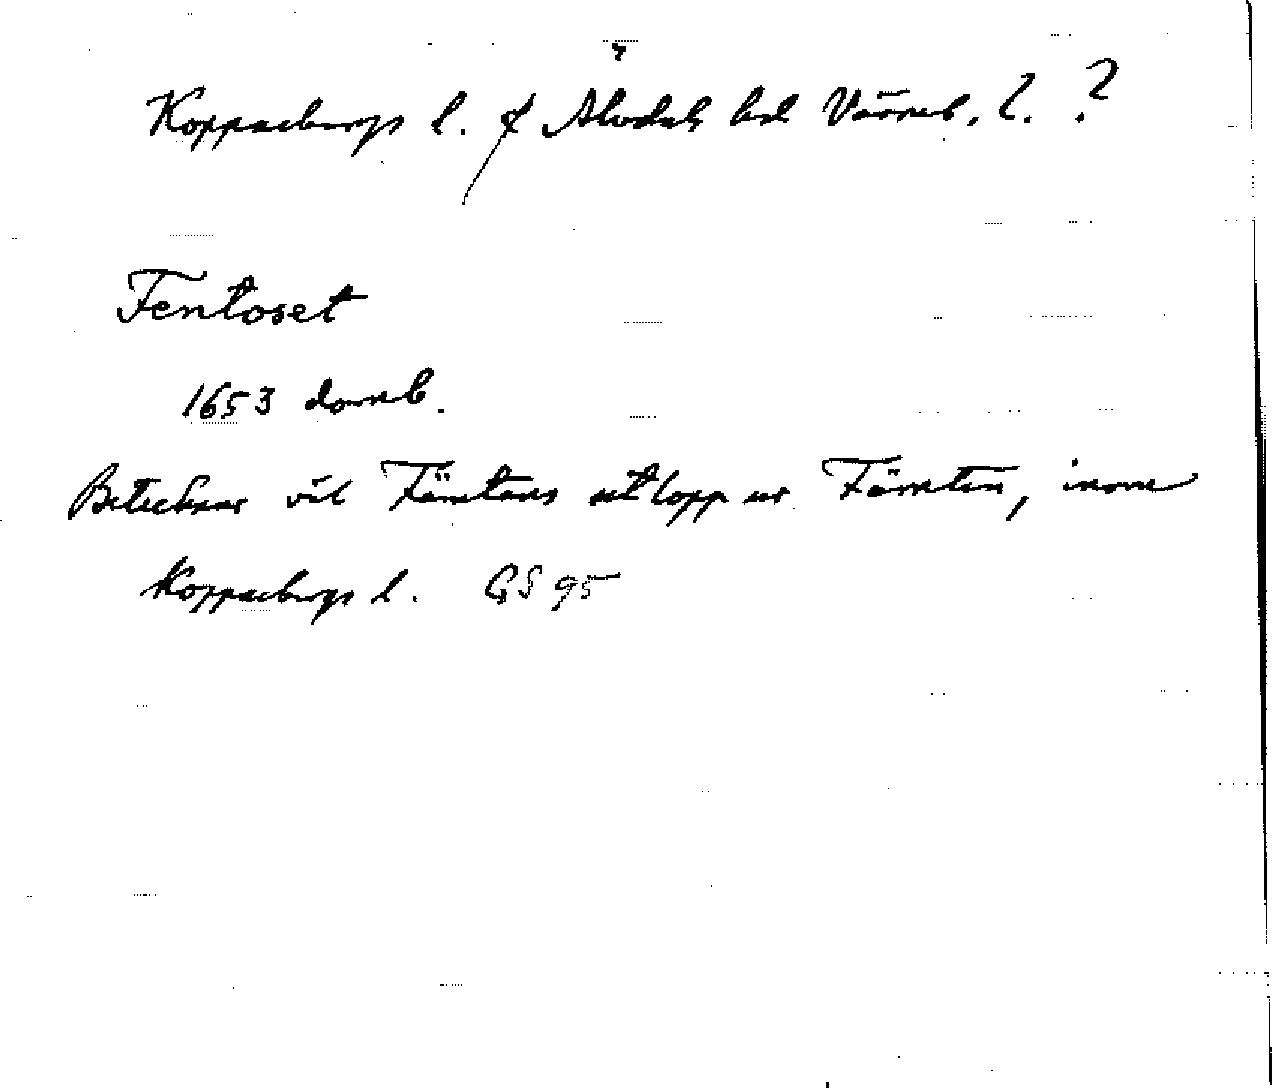 Kopparbergs l. & Älvdals hd Värml. l. ?
Fentoset
1653 domb.
Betecknar väl Fämtans utlopp ur Fämten, inom
Kopparbergs l. GS 95